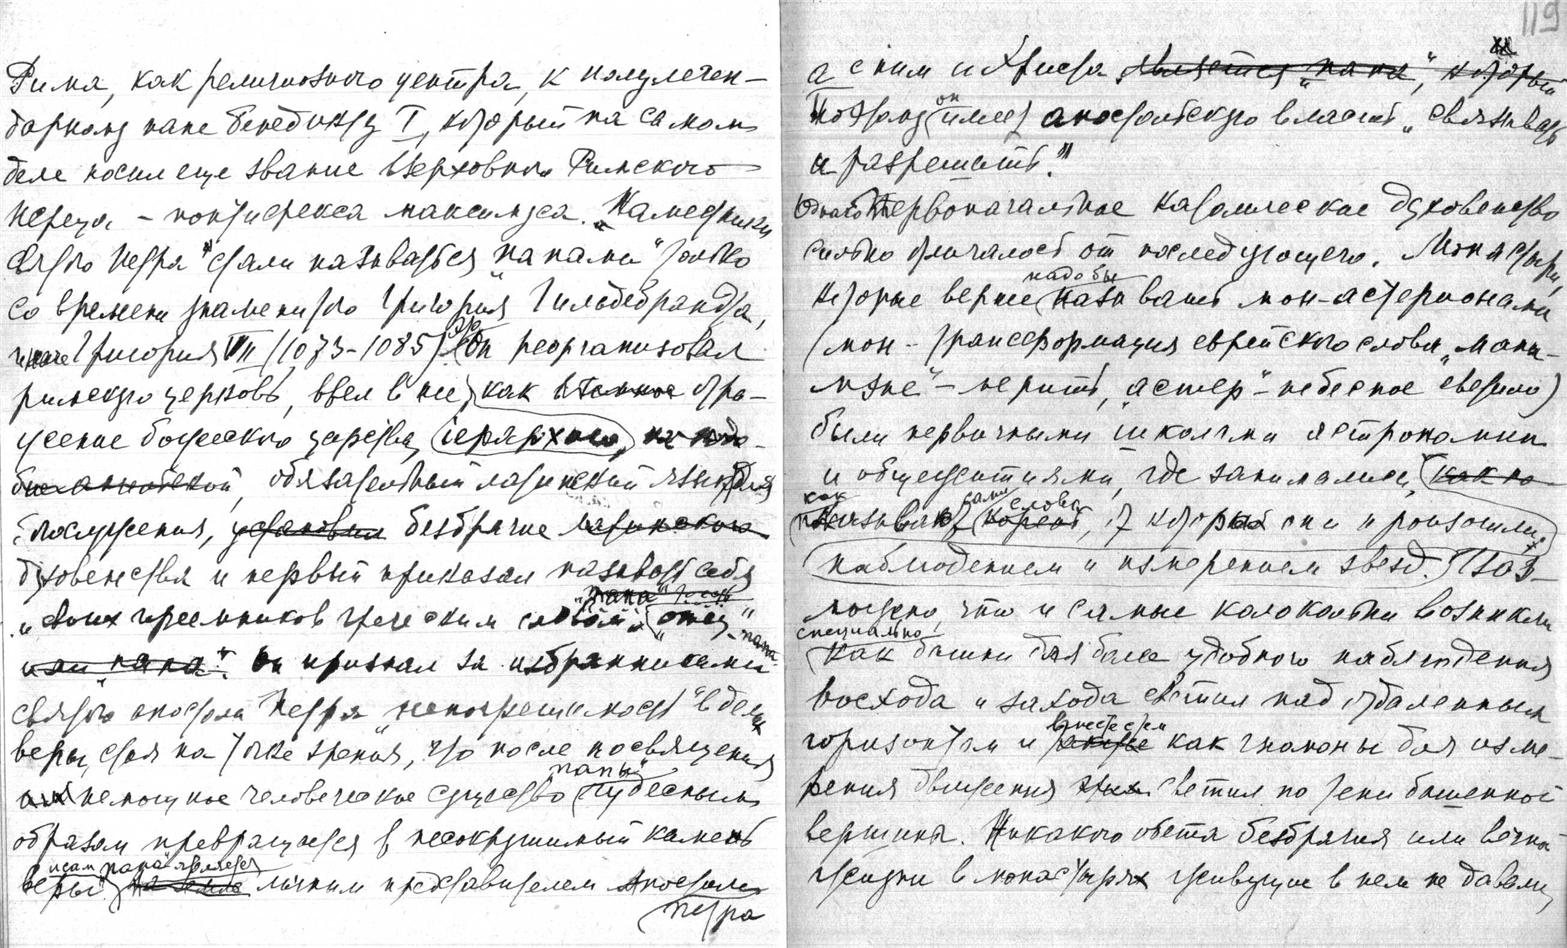 Рима, как религиозного центра, к полулеген-
дарному папе Бенедикту I, который на самом
деле носил еще звание Верховного Римского
жреца – понтифекса максимуса. „Наместники
Святого Петра" стали называться „папами" только
со времени знаменитого Григория Гильдебрандта,
иначе Григория VII (1073–1085) Он реорганизовал
римскую церковь, ввел в ней, как отра-
жение божеского царства, иерархию, на подо-
бие, обязательный латинский язык для
богослужения, установил безбрачие латинского
духовенства и первый приказал называть себя
и своих преемников греческим словом „отец" – папа
или „папа". Он признал за избранниками
святого апостола Петра „непогрешимость" в делах
веры, стоя на точке зрения, что после посвящения
немощное человеческое существо „папы" чудесным
образом превращается в несокрушимый камень
веры и сам папа является на земле личным представителем Апостола
Петра
119
а с ним и Христа является „папа", который
Потому он имеет апостольскую власть „связывать
и разрешать".
Однако Первоначальное католическое духовенство
сильно отличалось от последующего. Монастыри,
которые вернее надо бы называть мон-астерионами
(мон – трансформация еврейского слова „мана-
мэне" – мерить, „астер" – небесное светило)
были первичными школами астрономии
и общежитиями, где занимались, как по-
как показывают сами слова корень, от которых они произошли,
наблюдением и измерением звезд. Воз-
можно, что и самые колокольни возникли
специально как башни для более удобного наблюдения
восхода и захода светил над отдаленным
горизонтом и вместе с тем также как гномоны для изме-
рения движения этих светил по тени башенной
вершины. Никакого обета безбрачия или вечной
жизни в монастырях живущие в нем не давали,